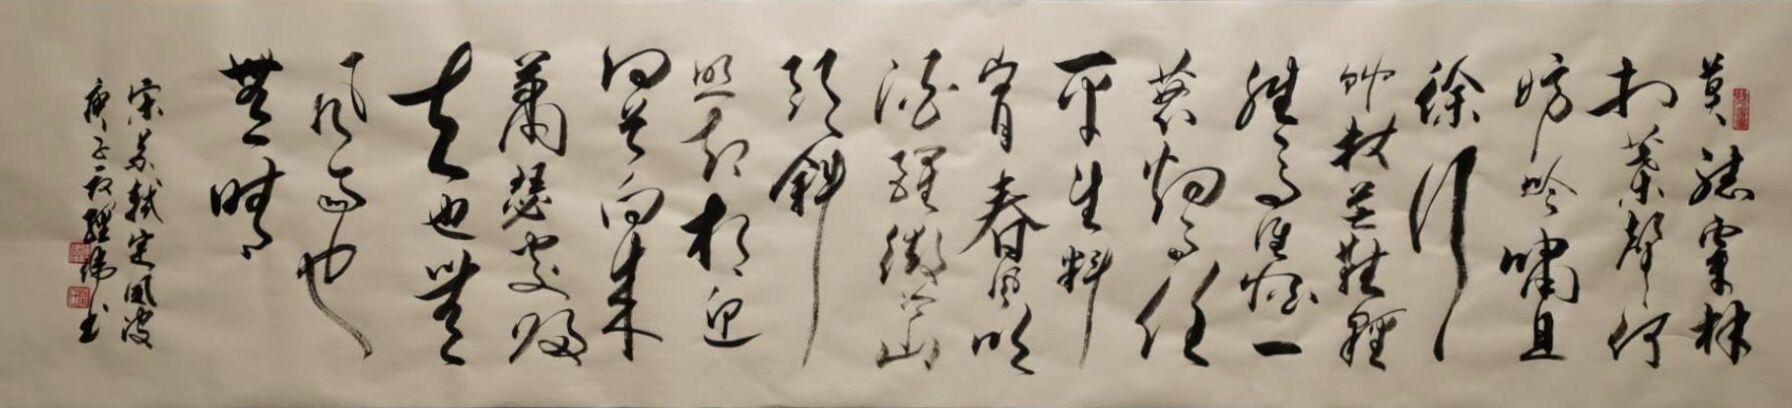 莫聽穿林
打葉聲何
妨吟嘯且
徐行
竹杖芒鞋輕
勝馬誰怕一
蓑烟雨任
平生料
峭春風吹
酒醒微冷山
頭斜
照却相迎
回首向來
蕭瑟處歸
去也無
風雨也
無晴
宋苏軾定風波
庚子秋 偉书